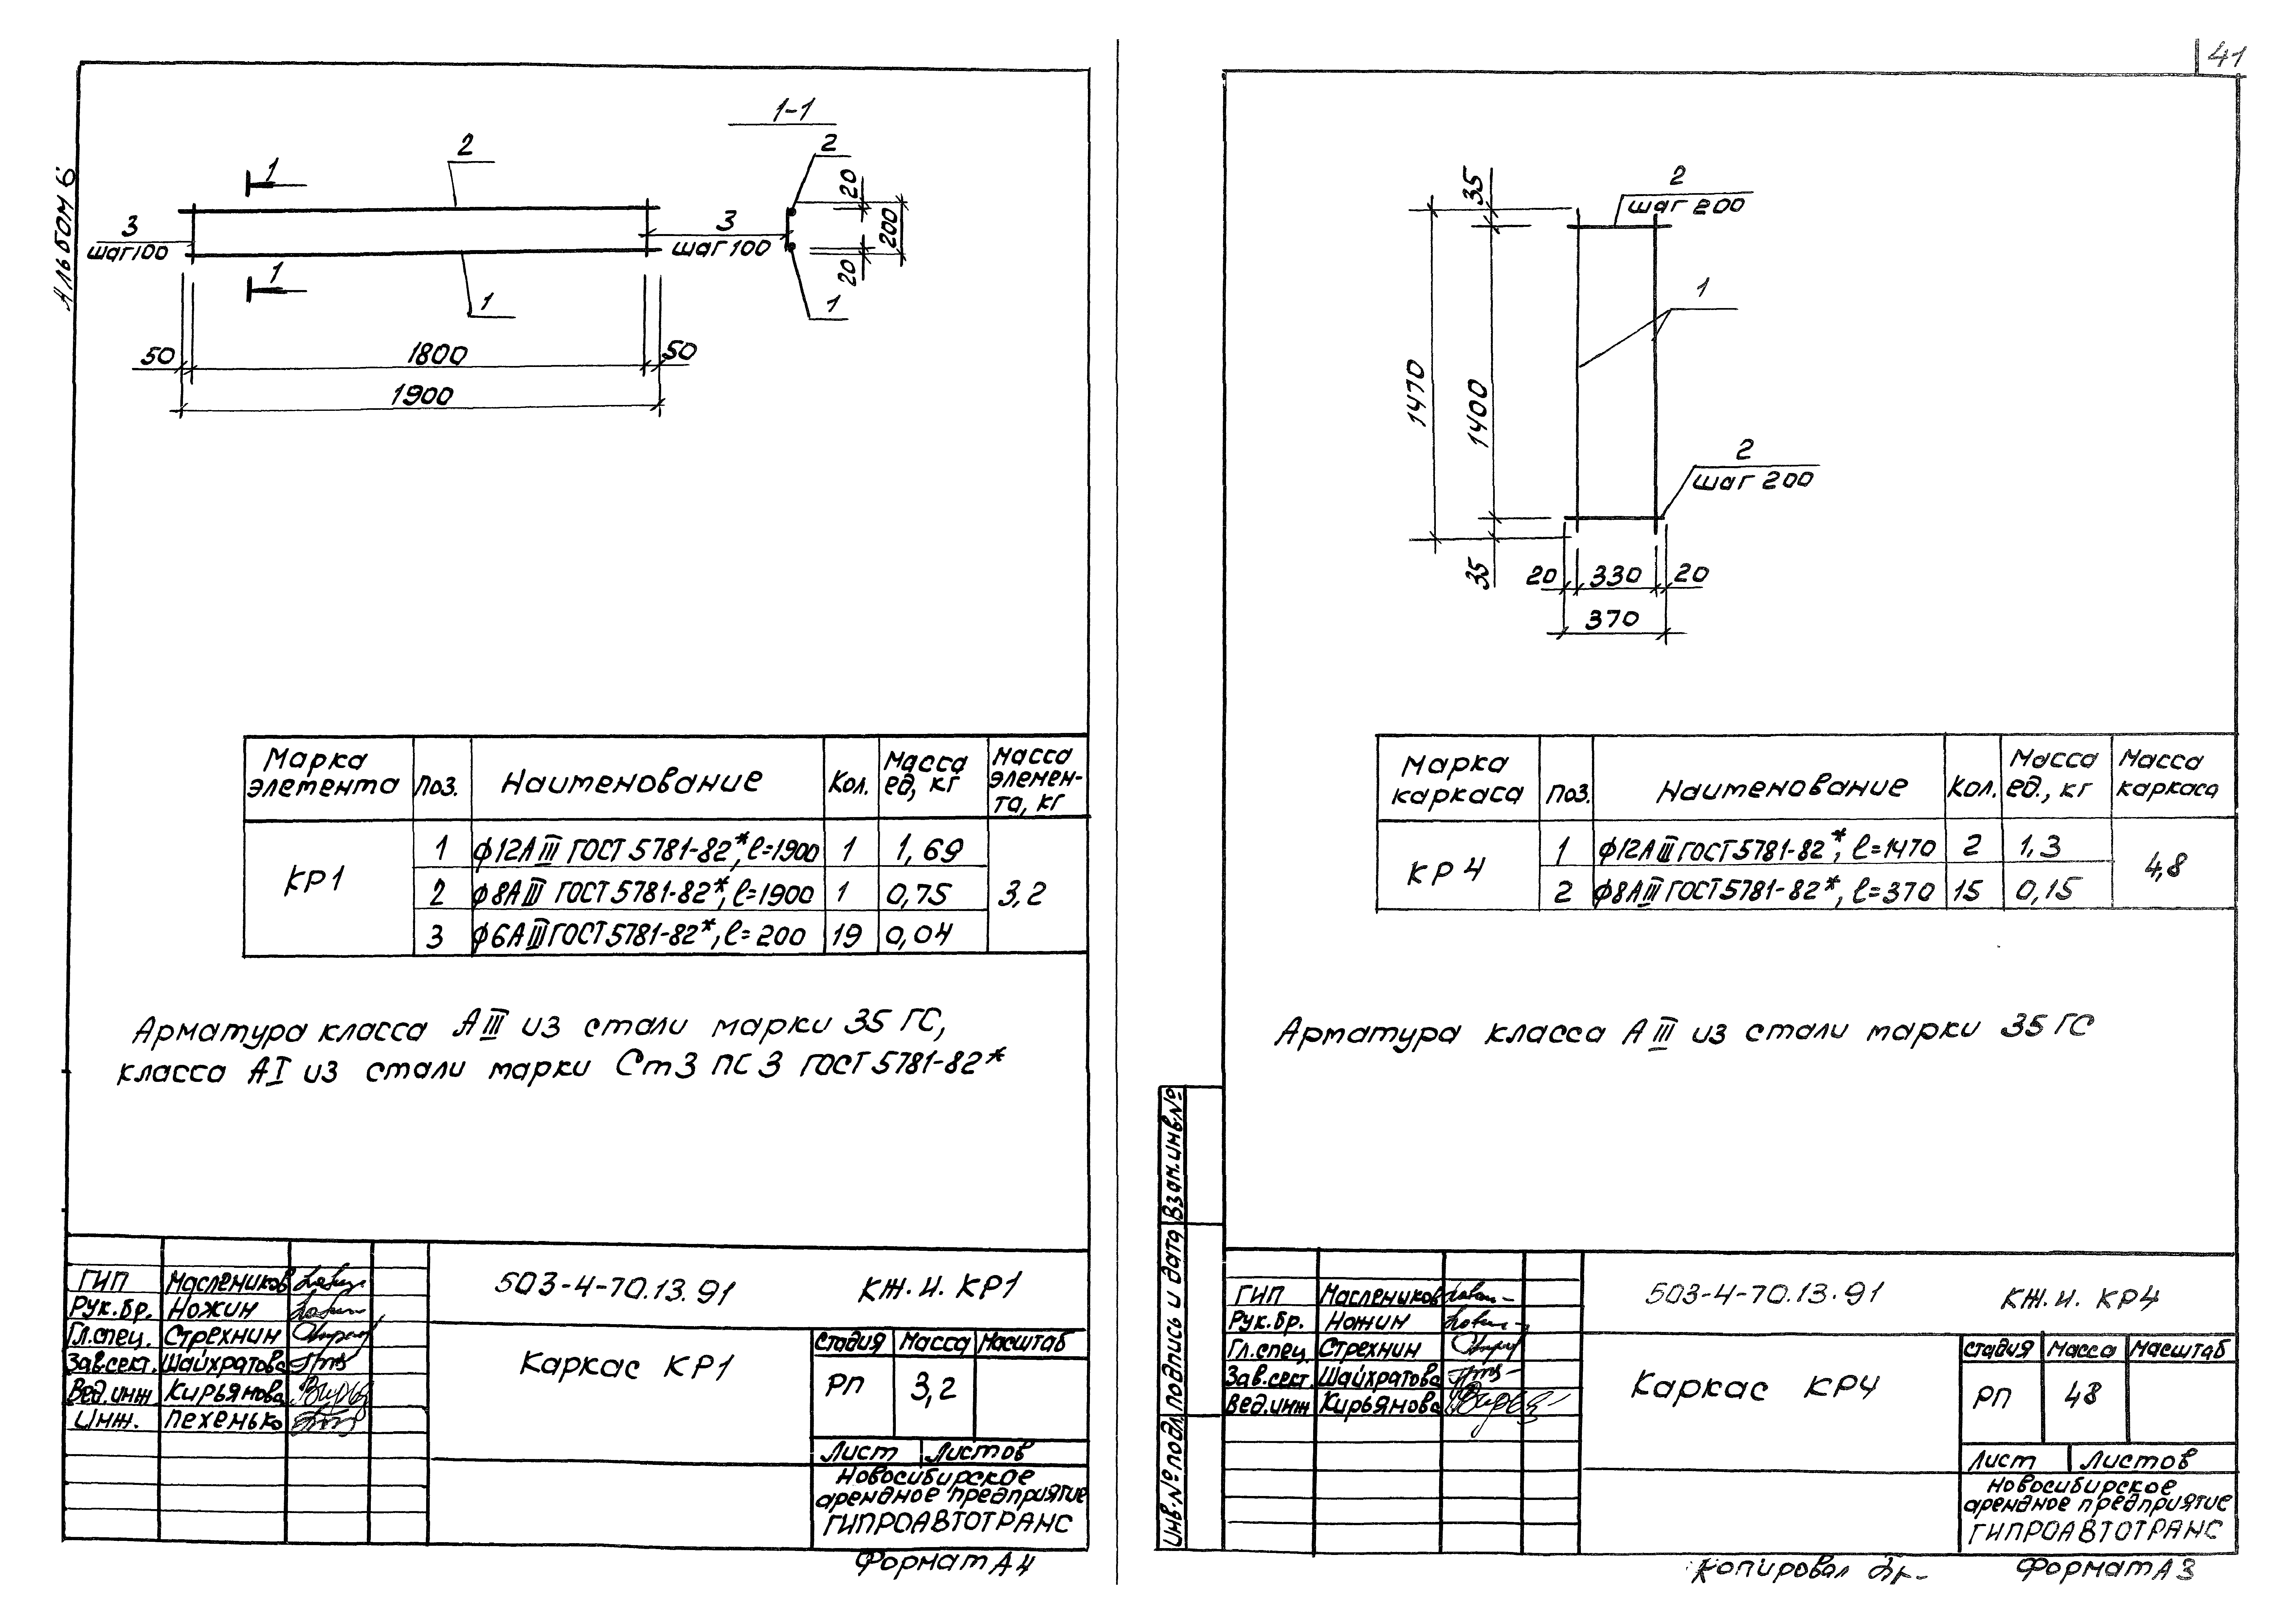 41
Альбом 6
1-1
2
1
1
3
шаг 100
2
1
3
шаг 100
2
1
20
200
20
50
1800
50
1900
Марка элемента
Поз.
Наименование
Кол.
Масса ед, кг
Масса элемен-та, кг
КР1
1 ϕ12АIII ГОСТ 5781-82*, ℓ=1900 1 1,69
2 ϕ8АIII ГОСТ 5781-82*, ℓ=1900 1 0,75
3 ϕ6АIII ГОСТ 5781-82*, ℓ=200 19 0,04
3,2
Арматура класса АIII из стали марки 35 ГС,
класса АI из стали марки Ст3 ПС 3 ГОСТ 5781-82*
ГИП Маслеников
Рук.бр. Ножин
Гл.спец. Стрехнин
Зав.сект. Шайхратова
Вед.инж Кирьянова
Инж. Пехенько
503-4-70.13.91 КЖ.И. КР1
Каркас КР1
Стадия Масса Масштаб
РП 3,2
Лист Листов
Новосибирское
арендное предприятие
ГИПРОАВТОТРАНС
Формат А4
2
шаг 200
1
2
шаг 200
35
1470
1400
35
20 330 20
370
Марка каркаса
Поз.
Наименование
Кол.
Масса ед., кг
Масса каркаса
КР4
1 ϕ12АIII ГОСТ 5781-82*, ℓ=1470 2 1,3
2 ϕ8АIII ГОСТ 5781-82*, ℓ=370 15 0,15
4,8
Арматура класса АIII из стали марки 35 ГС
Взам.инв.№
Подпись и дата
Инв.№ подл
ГИП Маслеников
Рук.бр. Ножин
Гл.спец Стрехнин
Зав.сект. Шайхратова
Вед.инж Кирьянова
503-4-70.13.91 КЖ.И. КР4
Каркас КР4
Стадия Масса Масштаб
РП 48
Лист Листов
Новосибирское
арендное предприятие
ГИПРОАВТОТРАНС
Копировал
Формат А3